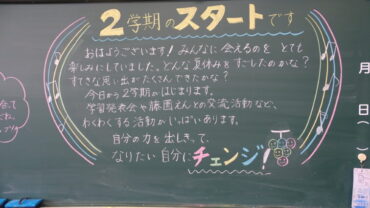 2学期のスタートです
おはようございます!みんなに会えるのを とても
楽しみにしていました。どんな夏休みをすごしたのかな?
すてきな思い出がたくさんできたかな?
今日から2学期がはじまります。
学習発表会や藤園えんとの交流活動など、
わくわくする活動がいっぱいあります。
自分の力を出しきって、
なりたい自分にチェンジ!
月
日